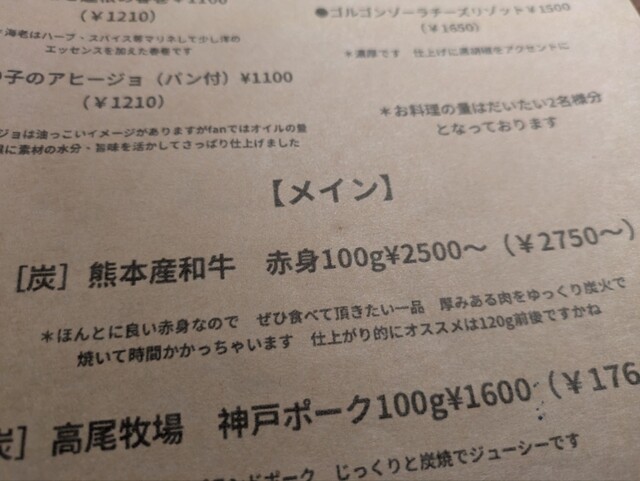 ¥1100
（￥1210）
＊海老はハーブ・スパイス等マリネして少し洋の
エッセンスを加えた春巻です
子のアヒージョ（パン付）¥1100
（￥1210）
ジョは油っこいイメージがありますがfanではオイルの量
に素材の水分・旨味を活かしてさっぱり仕上げました
●ゴルゴンゾーラチーズリゾット¥1500
（￥1650）
＊濃厚です　仕上げに黒胡椒をアクセントに
＊お料理の量はだいたい2名様分
となっております
【メイン】
［炭］熊本産和牛　赤身100g¥2500～（￥2750～）
＊ほんとに良い赤身なので　ぜひ食べて頂きたい一品　厚みある肉をゆっくり炭火で
焼いて時間かかっちゃいます　仕上がり的にオススメは120g前後ですかね
炭］高尾牧場　神戸ポーク100g¥1600（￥176
ンドポーク　じっくりと炭焼でジューシーです